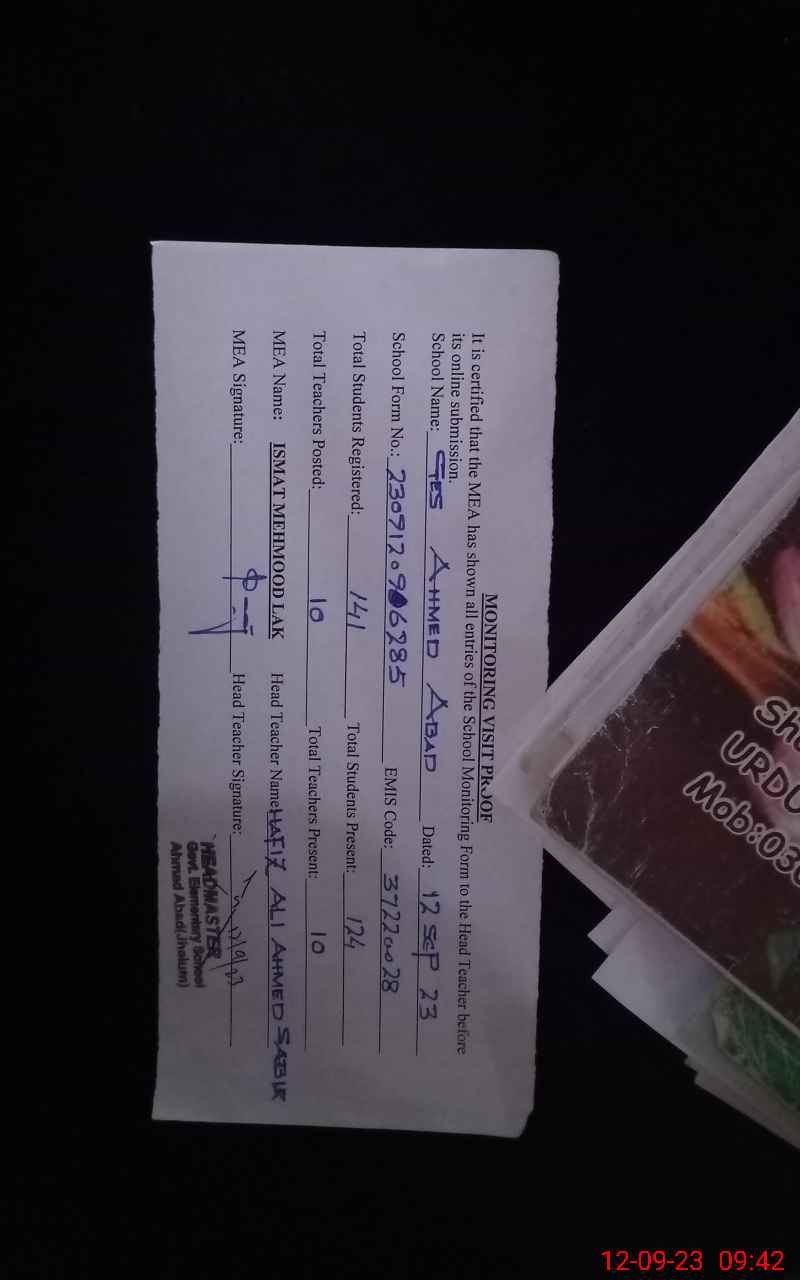 MONITORING VISIT PROOF
It is certified that the MEA has shown all entries of the School Monitoring Form to the Head Teacher before
its online submission.
School Name: GES AHMED ABAD Dated: 12 SEP 23
School Form No.: EMIS Code: 37220028
Total Students Registered: 141 Total Students Present: 124
Total Teachers Posted: 10 Total Teachers Present: 10
MEA Name: ISMAT MEHMOOD LAK Head Teacher Name HAFIZ ALI AHMED SABIR
MEA Signature: Head Teacher Signature:
12/9/23
HEADMASTER
Govt. Elementary School
Ahmad Abad(Jhelum)
URDU
Mob:03
12-09-23 09:42